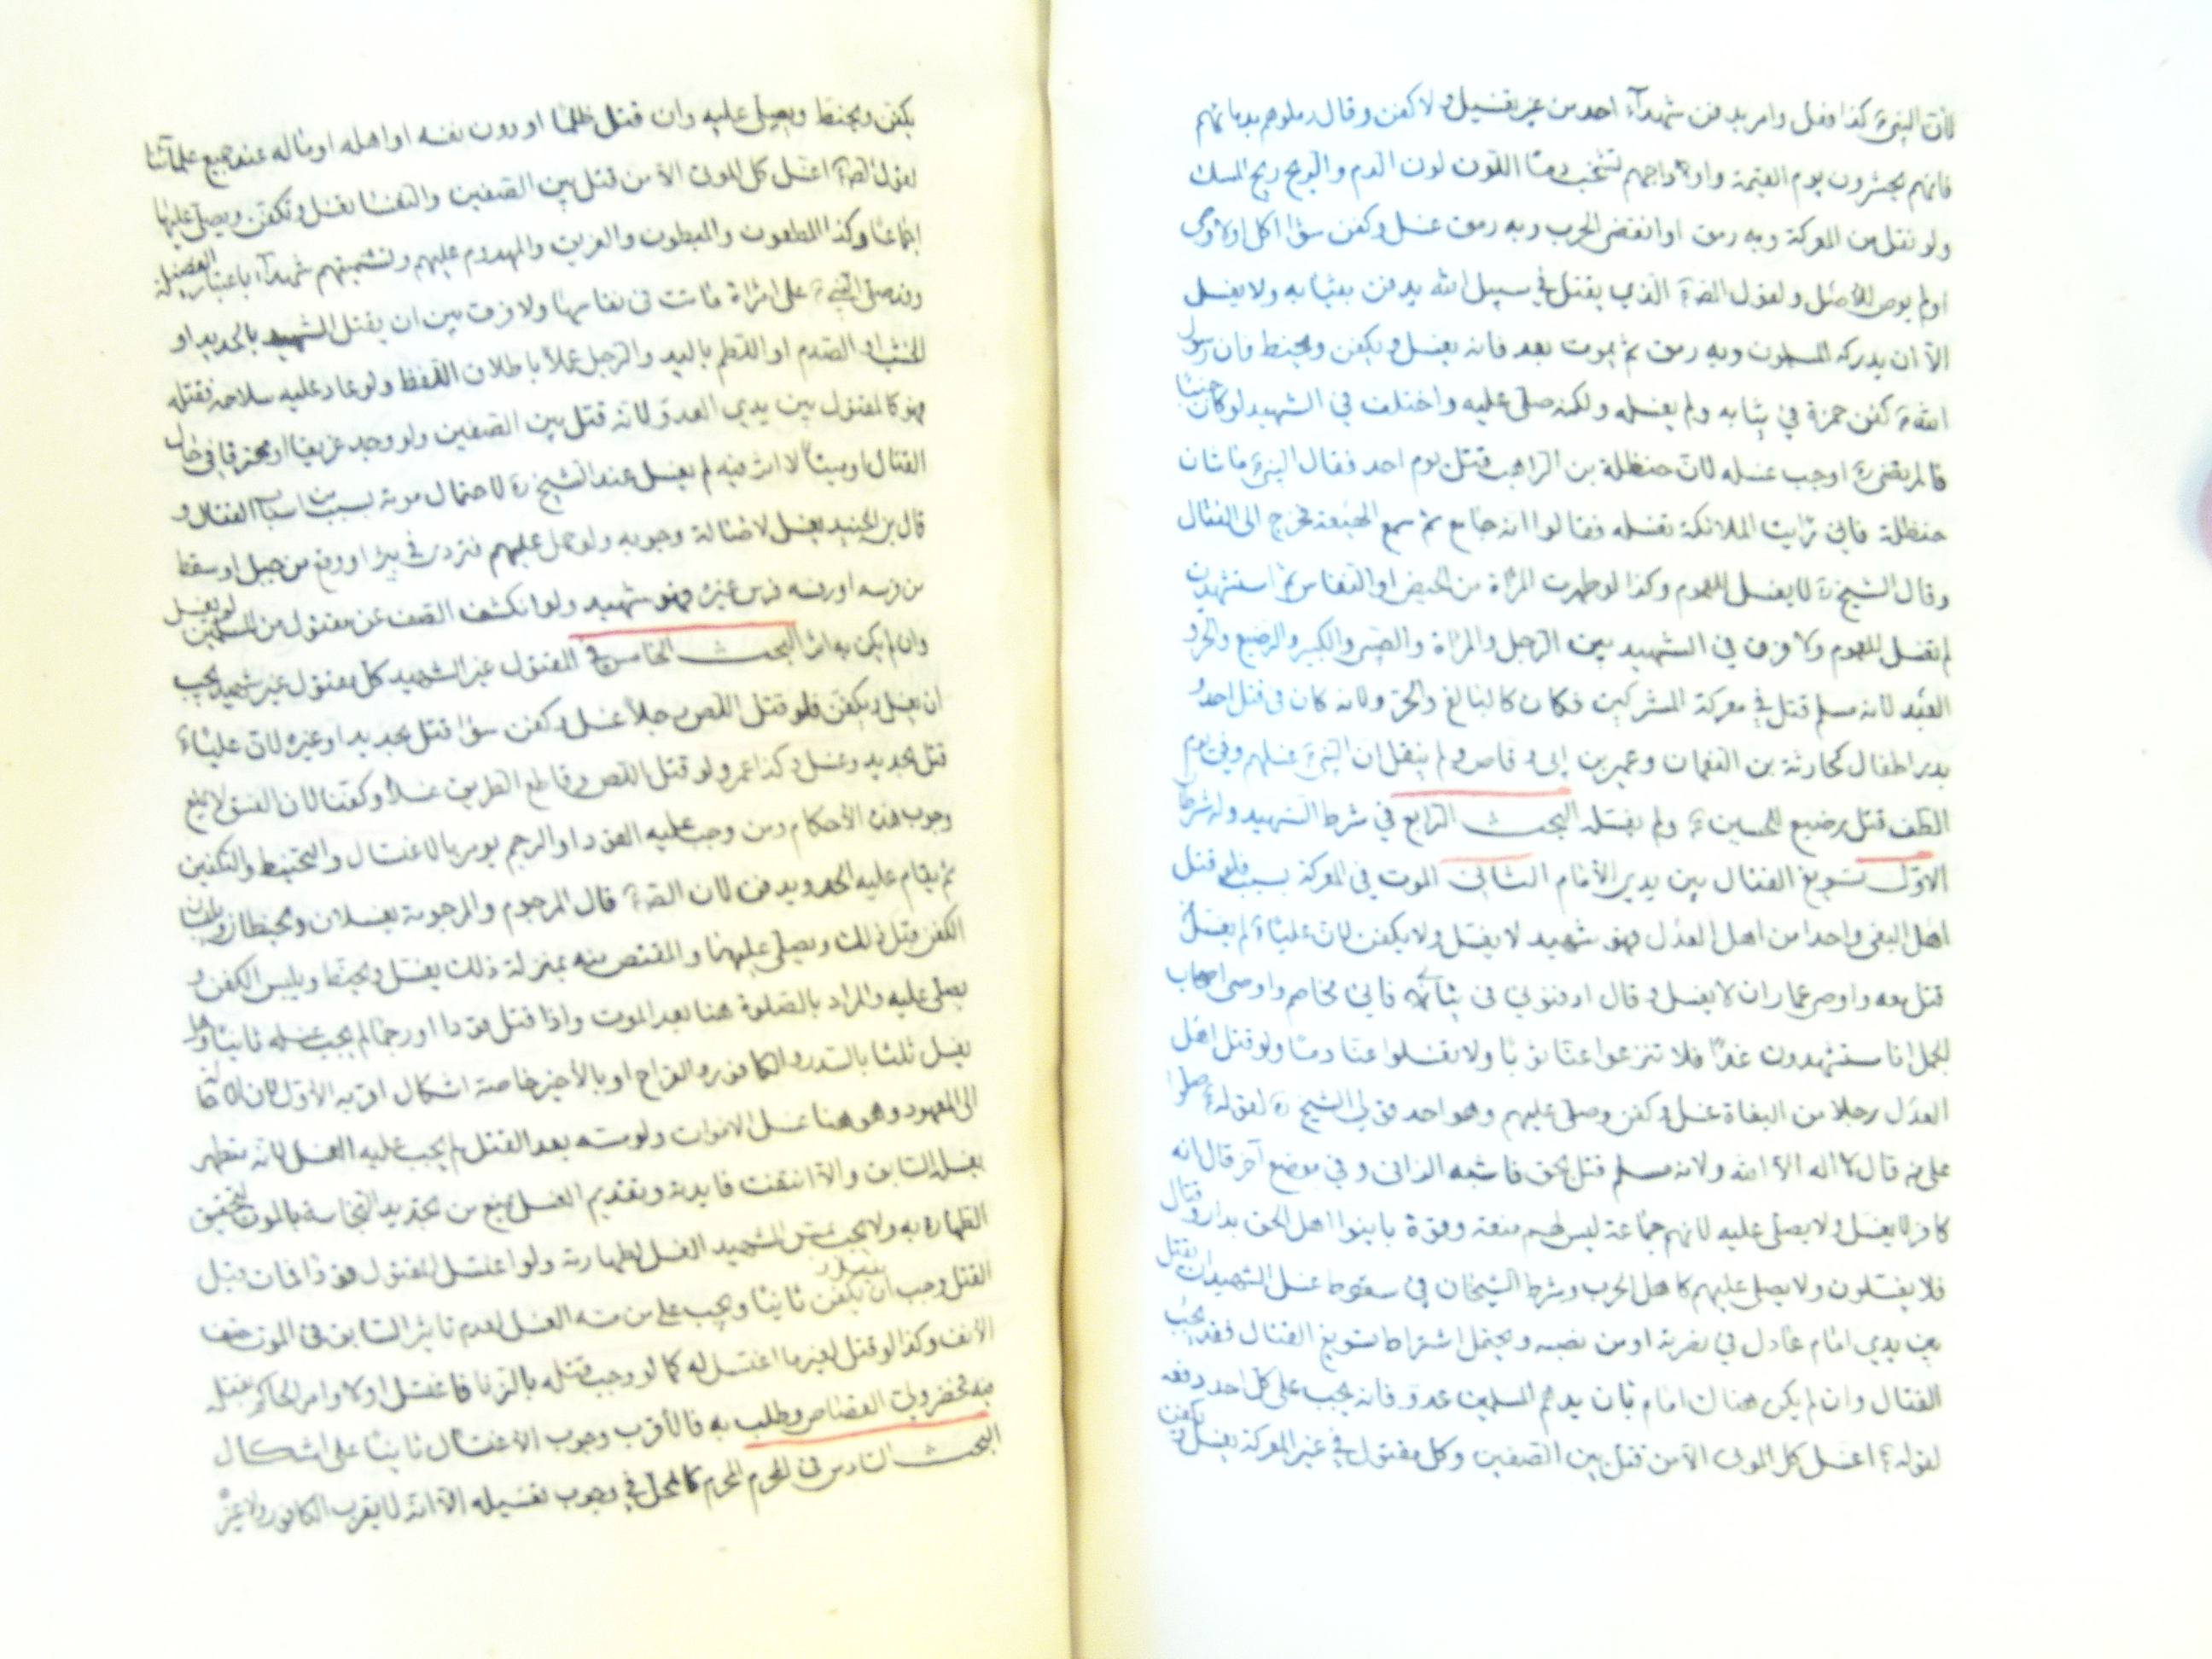 لأن النبي ص كذا فعل وامر بدفن شهداء احد من غير تغسيل ولا كفن وقال رملوهم بدمائهم
فانهم يحشرون يوم القيمة واوداجهم تشخب دما اللون لون الدم والريح ريح المسك
ولو نقل من المعركة وبه رمق او انقضى الحرب وبه رمق غسل وكفن سواء اكل او لا وصى
او لم يوص للأصل ولقول الص ع الذي يقتل في سبيل الله يدفن بثيابه ولا يغسل
الا ان يدركه المسلمون وبه رمق ثم يموت بعد فانه يغسل ويكفن ويحنط فان رسول
الله ص كفن حمزة في ثيابه ولم يغسله ولكنه صلى عليه واختلف في الشهيد لو كان جنبا
فالمرتضى ره اوجب غسله لان حنظلة بن الراهب قتل يوم احد فقال النبي ص ما شان
حنظلة فاني رايت الملائكة تغسله فقالوا انه جامع ثم سمع الهيعة فخرج الى القتال
وقال الشيخ ره لا يغسل للعموم وكذا لو طهرت المراة من الحيض او النفاس ثم استشهدت
لم تغسل للعموم ولا فرق في الشهيد بين الرجل والمراة والصبي والكبير والرضيع والحر و
العبد لانه مسلم قتل في معركة المشركين فكان كالبالغ والحر ولانه كان في قتلى احد و
بدر اطفال كحارثة بن النعمان وعمير بن ابي وقاص ولم ينقل ان النبي ص غسلهم وفي يوم
الطف قتل رضيع للحسين ع ولم يغسله البحث الرابع في شرط الشهيد وله شرطان
الاول تسويغ القتال بين يدي الأمام الثاني الموت في المعركة بسببه فلو قتل
اهل البغي واحدا من اهل العدل فهو شهيد لا يغسل ولا يكفن لان عليا ع لم يغسل من
قتل معه واوصى عمار ان لا يغسل وقال ادفنوني في ثيابي فاني مخاصم واوصى اصحاب
الجمل انا مستشهدون غدا فلا تنزعوا عنا ثوبا ولا تغسلوا عنا دما ولو قتل اهل
العدل رجلا من البغاة غسل وكفن وصلى عليهم وهو احد قولي الشيخ ره لقوله ع صلوا
على من قال لا اله الا الله ولانه مسلم قتل بحق فاشبه الزاني وفي موضع آخر قال انه
كافر لا يغسل ولا يصلى عليه لانهم جماعة ليس لهم منعة وقوة باينوا اهل الحق بدار وقتال
فلا يغسلون ولا يصلى عليهم كاهل الحرب وشرط الشيخان في سقوط غسل الشهيد ان يقتل
بين يدي امام عادل في نصرته او من نصبه ويحتمل اشتراط تسويغ القتال فقد يجب
القتال وان لم يكن هناك امام بان يدهم المسلمين عدو فانه يجب على كل احد دفعه
لقوله ع اغسل كل الموتى الا من قتل بين الصفين وكل مقتول في غير المعركة يغسل ويكفن
يكفن ويحنط ويصلى عليه وان قتل ظلما او دون نفسه او اهله او ماله عند جميع علمائنا
لقول الص ع اغسل كل الموتى الا من قتل بين الصفين والنفسا تغسل وتكفن ويصلى عليها
اجماعا وكذا المطعون والمبطون والغريق والمهدوم عليهم وتسميتهم شهداء باعتبار الفضيلة
وقد صلى النبي ص على امراة ماتت في نفاسها ولا فرق بين ان يقتل الشهيد بالحديد او
الخشب او الصدم او اللطم باليد والرجل عملا باطلاق اللفظ ولو عاد عليه سلاحه فقتله
فهو كالمقتول بين يدي العدو لانه قتل بين الصفين ولو وجد غريقا او محترقا في حال
القتال او ميتا لا اثر فيه لم يغسل عند الشيخ ره لاحتمال موته بسبب من اسباب القتال و
قال بن الجنيد يغسل لاصالة وجوبه ولو حمل عليهم فتردى في بئر او وقع من جبل او سقط
من فرسه او رفسه فرس غيره فهو شهيد ولو انكشف الصف عن مقتول من المسلمين لم يغسل
وان لم يكن به اثر البحث الخامس في المقتول غير الشهيد كل مقتول غير شهيد يجب
ان يغسل ويكفن فلو قتل اللص رجلا غسل وكفن سواء قتل بحديد او غيره لان عليا ع
قتل بحديد وغسل وكذا عمر ولو قتل اللص وقاطع الطريق غسلا وكفنا لان الفسق لا يمنع
وجوب هذه الأحكام ومن وجب عليه القود او الرجم يؤمر بالاغتسال والتحنيط والتكفين
ثم يقام عليه الحد ويدفن لان الص ع قال المرجوم والمرجومة يغسلان ويحنطان ويلبسان
الكفن قبل ذلك ويصلى عليهما والمقتص منه بمنزلة ذلك يغسل ويحنط ويلبس الكفن و
يصلى عليه والمراد بالصلوة هنا بعد الموت واذا قتل قودا او رجما لم يجب غسله ثانيا وهل
يغسل ثلثا بالسدر والكافور والقراح او بالأخير خاصة اشكال اقربه الأول
الى المعهود وهو هنا غسل الاموات ولو مسه بعد القتل لم يجب عليه الغسل لانه متطهر
بغسله السابق والا انتفت فايدته وتقديم الغسل يمنع من تجديد النجاسة بالموت لتحقيق
الطهارة به ولا يجب بمس الشهيد الغسل لطهارته ولو اغتسل المقتول قودا فمات قبل
القتل وجب ان يغسل ويكفن ثانيا ويجب على من مسه الغسل لعدم تاثير السابق في الموت حتف
الأنف وكذا لو قتل لغير ما اغتسل له كما لو وجب قتله بالزنا فاغتسل اولا وامر الحاكم بقتله
فحضر ولي القصاص وطلب به فالأقرب وجوب الاغتسال ثانيا على اشكال
البحث السادس في المحرم المحرم كالمحل في وجوب تغسيله الا انه لا يقرب الكافور ولا غيره